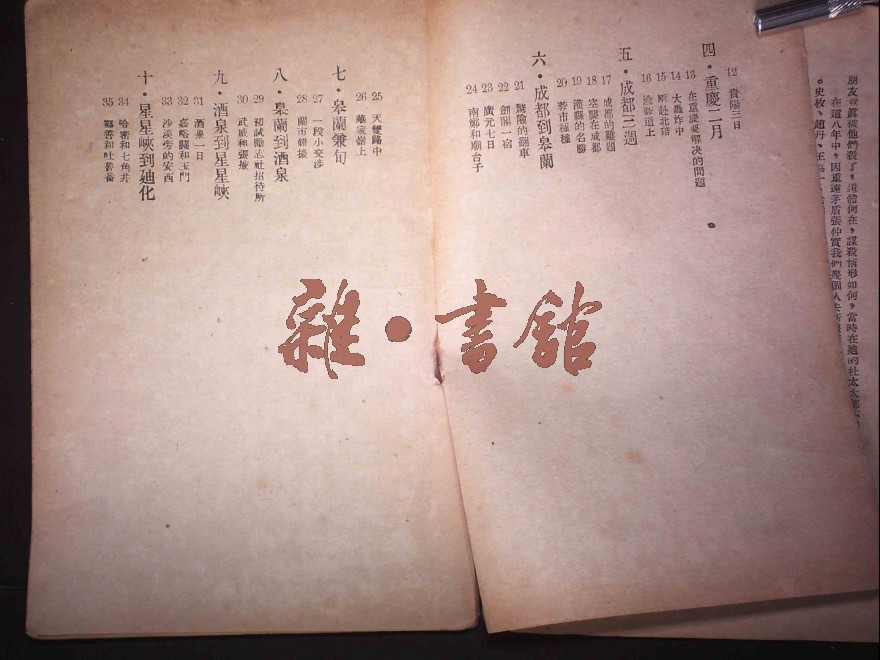 朋友竟真被他們殺了，遺體何在，謀殺情形如何，當時在迪的杜太太都
在這八年中，因重遠茅盾張仲實我們幾個人
。史枚、趙丹、王為一、
12 貴陽三日
四·重慶二月
13 在重慶要解決的問題
14 大轟炸中
15 兩赴北碚
16 渝蓉道上
五·成都三週
17 成都的難題
18 空襲在成都
19 灌縣的名勝
20 蓉市種種
六·成都到皋蘭
21 驚險的翻車
22 劍閣一宿
23 廣元七日
24 南鄭和廟台子
25 天雙路中
26 華家嶺上
七·皋蘭兼旬
27 一段小交涉
28 蘭市雜掇
八·皋蘭到酒泉
29 初試勵志社招待所
30 武威和張掖
九·酒泉到星星峽
31 酒泉一日
32 嘉峪關和玉門
33 沙漠旁的安西
十·星星峽到迪化
34 哈密和七角井
35 鄯善和吐魯番
雜·書館